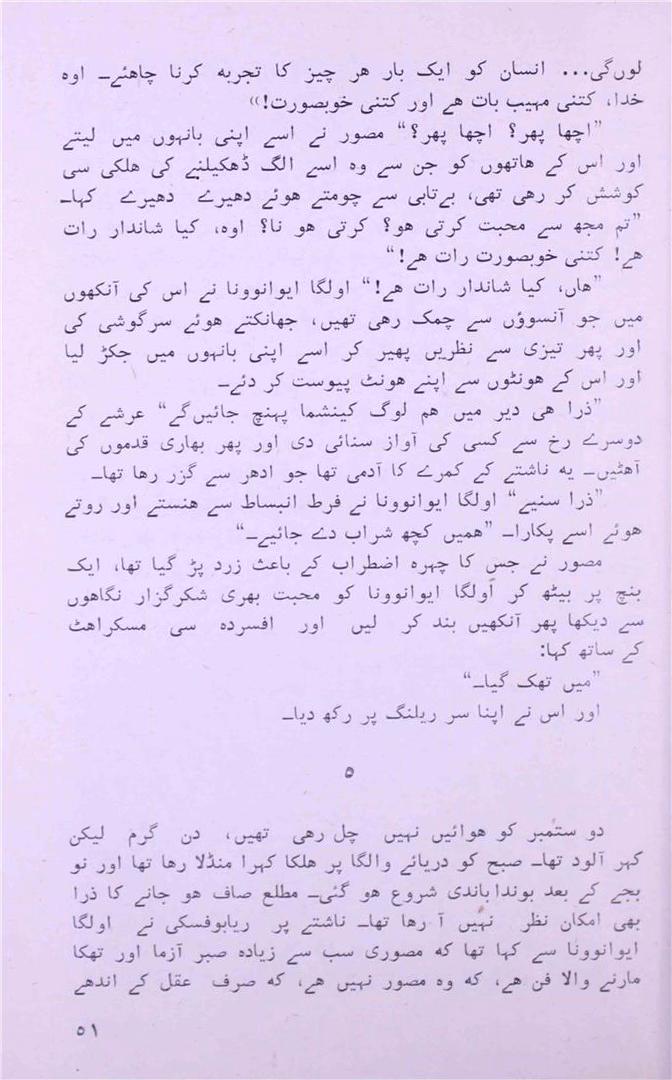 لوں‌گی... انسان کو ایک بار هر چیز کا تجربه کرنا چاهئے۔ اوه
خدا، کتنی مہیب بات هے اور کتنی خوبصورت!»
”اچها پهر؟ اچها پهر؟“ مصور نے اسے اپنی بانہوں میں لیتے
اور اس کے هاتهوں کو جن سے وه اسے الگ ڈهکیلنے کی هلکی سی
کوشش کر رهی تهی، بے‌تابی سے چومتے هوئے دهیرے دهیرے کہا۔
”تم مجھ سے محبت کرتی هو؟ کرتی هو نا؟ اوه، کیا شاندار رات
هے! کتنی خوبصورت رات هے!“
”هاں، کیا شاندار رات هے!“ اولگا ایوانوونا نے اس کی آنکهوں
میں جو آنسوؤں سے چمک رهی تهیں، جهانکتے هوئے سرگوشی کی
اور پهر تیزی سے نظریں پهیر کر اسے اپنی بانہوں میں جکڑ لیا
اور اس کے هونٹوں سے اپنے هونٹ پیوست کر دئے۔
”ذرا هی دیر میں هم لوگ کینشما پہنچ جائیں‌گے“ عرشے کے
دوسرے رخ سے کسی کی آواز سنائی دی اور پهر بهاری قدموں کی
آهٹیں۔ یه ناشتے کے کمرے کا آدمی تها جو ادهر سے گزر رها تها۔
”ذرا سنیے“ اولگا ایوانوونا نے فرط انبساط سے هنستے اور روتے
هوئے اسے پکارا۔ ”همیں کچھ شراب دے جائیے۔“
مصور نے جس کا چہره اضطراب کے باعث زرد پڑ گیا تها، ایک
بنچ پر بیٹھ کر اولگا ایوانوونا کو محبت بهری شکرگزار نگاهوں
سے دیکها پهر آنکهیں بند کر لیں اور افسرده سی مسکراهٹ
کے ساتھ کہا:
”میں تهک گیا۔“
اور اس نے اپنا سر ریلنگ پر رکھ دیا۔
۵
دو ستمبر کو هوائیں نہیں چل رهی تهیں، دن گرم لیکن
کہر آلود تها۔ صبح کو دریائے والگا پر هلکا کہرا منڈلا رها تها اور نو
بجے کے بعد بونداباندی شروع هو گئی۔ مطلع صاف هو جانے کا ذرا
بهی امکان نظر نہیں آ رها تها۔ ناشتے پر ریابوفسکی نے اولگا
ایوانوونا سے کہا تها که مصوری سب سے زیاده صبر آزما اور تهکا
مارنے والا فن هے، که وه مصور نہیں هے، که صرف عقل کے اندهے
۵۱